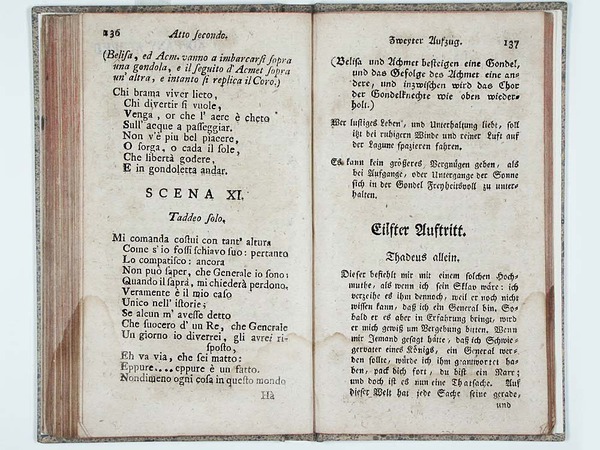 236 Atto secondo.
(Belisa, ed Acm. vanno a imbarcarsi sopra
una gondola, e il seguito d'Acmet sopra
un' altra, e intanto si replica il Coro.)
Chi brama viver lieto,
Chi divertir si vuole,
Venga, or che l' aere è cheto
Sull' acque a passeggiar.
Non v'è piu bel piacere,
O sorga, o cada il sole,
Che libertà godere,
E in gondoletta andar.
SCENA XI.
Taddeo solo.
Mi comanda costui con tant' altura
Come s'io fossi schiavo suo: pertanto
Lo compatisco: ancora
Non può saper, che Generale io sono;
Quando il saprà, mi chiederà perdono.
Veramente è il mio caso
Unico nell' istorie;
Se alcun m' avesse detto
Che suocero d' un Re, che Generale
Un giorno io diverrei, gli avrei ri-
sposto,
Eh va via, che sei matto:
Eppure.... eppure è un fatto.
Nondimeno ogni cosa in questo mondo
Hà
Zweyter Aufzug. 137
(Belisa und Achmet besteigen eine Gondel,
und das Gefolge des Achmet eine an-
dere, und inzwischen wird das Chor
der Gondelknechte wie oben wieder-
holt.)
Wer lustiges Leben, und Unterhaltung liebt, soll
itzt bei ruhigem Winde und reiner Luft auf
der Lagune spazieren fahren.
Es kann kein größeres Vergnügen geben, als
bei Aufgange, oder Untergange der Sonne
sich in der Gondel Freyheitsvoll zu unter-
halten.
Eilfter Auftritt.
Thadeus allein.
Dieser befiehlt mir mit einem solchen Hoch-
muthe, als wenn ich sein Sklav wäre: ich
verzeihe es ihm dennoch, weil er noch nicht
wissen kann, daß ich ein General bin. So-
bald er es aber in Erfahrung bringt, wird
er mich gewiß um Vergebung bitten. Wenn
mir Jemand gesagt hätte, daß ich Schwie-
gervater eines Königs, ein General wer-
den sollte, würde ich ihm geantwortet ha-
ben, pack dich fort, du bist ein Narr;
und doch ist es nun eine Thatsache. Auf
dieser Welt hat jede Sache seine gerade,
und